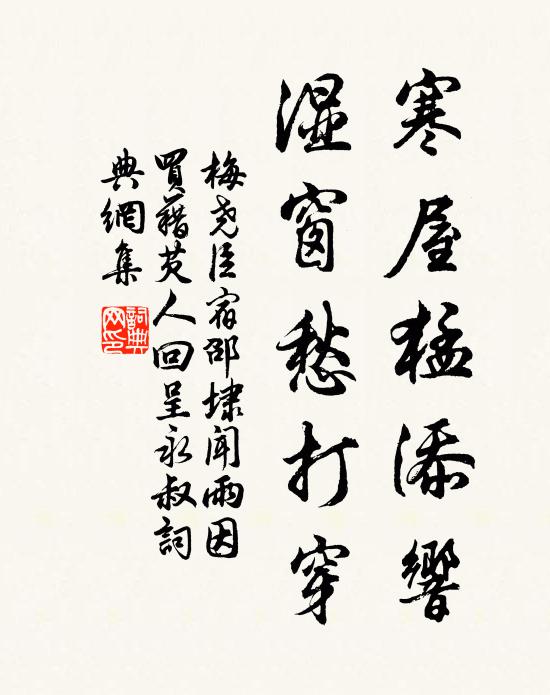 寒屋猛添響
湿窗愁打穿
梅尧臣宿邵埭闻雨因
買藕芡人回呈永叔詞
典網集
詞典网印